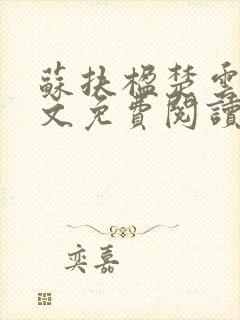 蘇扶楹楚雲
文免費閱讀
奕嘉